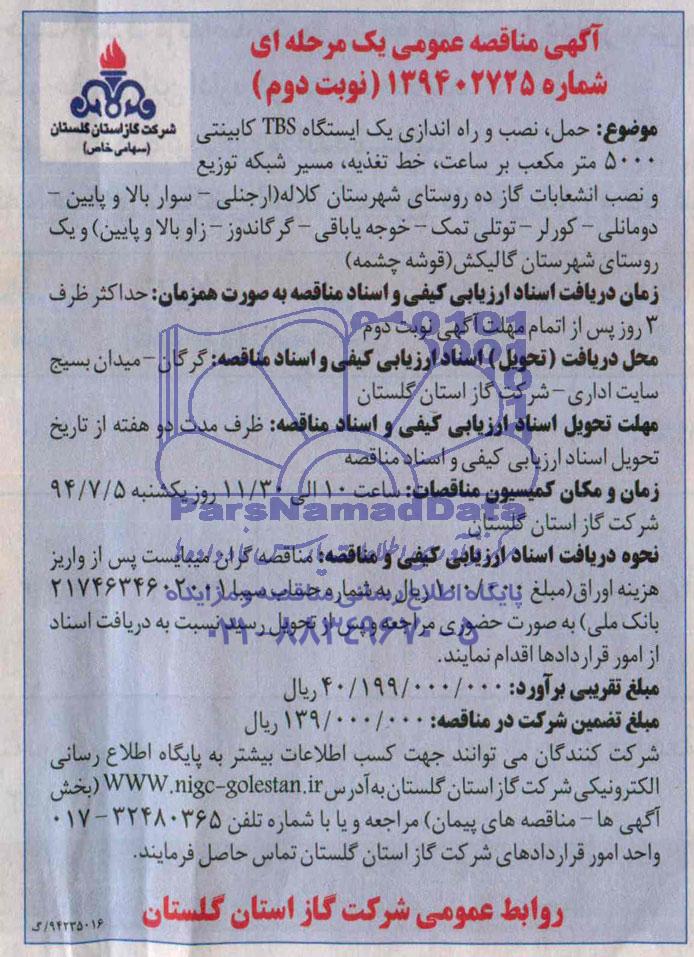 آگهی مناقصه عمومی یک مرحله ای
شماره ۱۳۹۴۰۲۷۲۵ (نوبت دوم)
شرکت گاز استان گلستان
(سهامی خاص)
موضوع: حمل، نصب و راه اندازی یک ایستگاه TBS کابینتی
۵۰۰۰ متر مکعب بر ساعت، خط تغذیه، مسیر شبکه توزیع
و نصب انشعابات گاز ده روستای شهرستان کلاله(ارجنلی - سوار بالا و پایین -
دومانلی - کورلر - توتلی تمک - خوجه یاپاقی - گرگاندوز - زاو بالا و پایین) و یک
روستای شهرستان گالیکش(قوشه چشمه)
زمان دریافت اسناد ارزیابی کیفی و اسناد مناقصه به صورت همزمان: حداکثر ظرف
۳ روز پس از اتمام مهلت آگهی نوبت دوم
محل دریافت (تحویل) اسناد ارزیابی کیفی و اسناد مناقصه: گرگان - میدان بسیج
سایت اداری - شرکت گاز استان گلستان
مهلت تحویل اسناد ارزیابی کیفی و اسناد مناقصه: ظرف مدت دو هفته از تاریخ
تحویل اسناد ارزیابی کیفی و اسناد مناقصه
زمان و مکان کمیسیون مناقصات: ساعت ۱۰ الی ۱۱/۳۰ روز یکشنبه ۹۴/۷/۵
شرکت گاز استان گلستان
ParsNamadData
نحوه دریافت اسناد ارزیابی کیفی و مناقصه: مناقصه گران میبایست پس از واریز
هزینه اوراق(مبلغ ۱۰۰/۰۰۰ ریال به شماره حساب سیبا ۲۱۷۴۶۳۴۶۰۲۰۰۱
پایگاه اطلاع رسانی مناقصه و مزایده
بانک ملی) به صورت حضوری مراجعه و پس از تحویل رسید نسبت به دریافت اسناد
۰۲۱-۸۸۳۴۹۶۷۰-۵
از امور قراردادها اقدام نمایند.
مبلغ تقریبی برآورد: ۴۰/۱۹۹/۰۰۰/۰۰۰ ریال
مبلغ تضمین شرکت در مناقصه: ۱۳۹/۰۰۰/۰۰۰ ریال
شرکت کنندگان می توانند جهت کسب اطلاعات بیشتر به پایگاه اطلاع رسانی
الکترونیکی شرکت گاز استان گلستان به آدرس WWW.nigc-golestan.ir (بخش
آگهی ها - مناقصه های پیمان) مراجعه و یا با شماره تلفن ۳۲۴۸۰۳۶۵-۰۱۷
واحد امور قراردادهای شرکت گاز استان گلستان تماس حاصل فرمایند.
روابط عمومی شرکت گاز استان گلستان
۹۴۲۳۵۰۱۶/گ